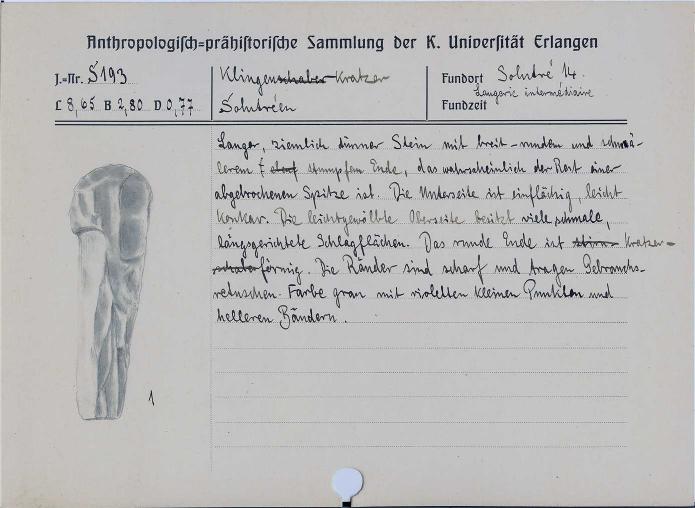 Anthropologisch=prähistorische Sammlung der K. Universität Erlangen
J.=Nr. S193
L 8,65 B 2,80 D 0,77
Klingenschaber Kratzer
Solutréen
Fundort Solutré 14.
Laugerie intermédiaire
Fundzeit
Langer, ziemlich dünner Stein mit breit-rundem und schmä-
lerem stumpfem Ende, das wahrscheinlich der Rest einer
abgebrochenen Spitze ist. Die Unterseite ist einflächig, leicht
konkav. Die leichtgewölbte Oberseite besitzt viele schmale,
längsgerichtete Schlagflächen. Das runde Ende ist Kratzer=
schaberförmig. Die Ränder sind scharf und tragen Gebrauchs-
retuschen. Farbe grau mit violetten kleinen Punkten und
helleren Bändern.
1